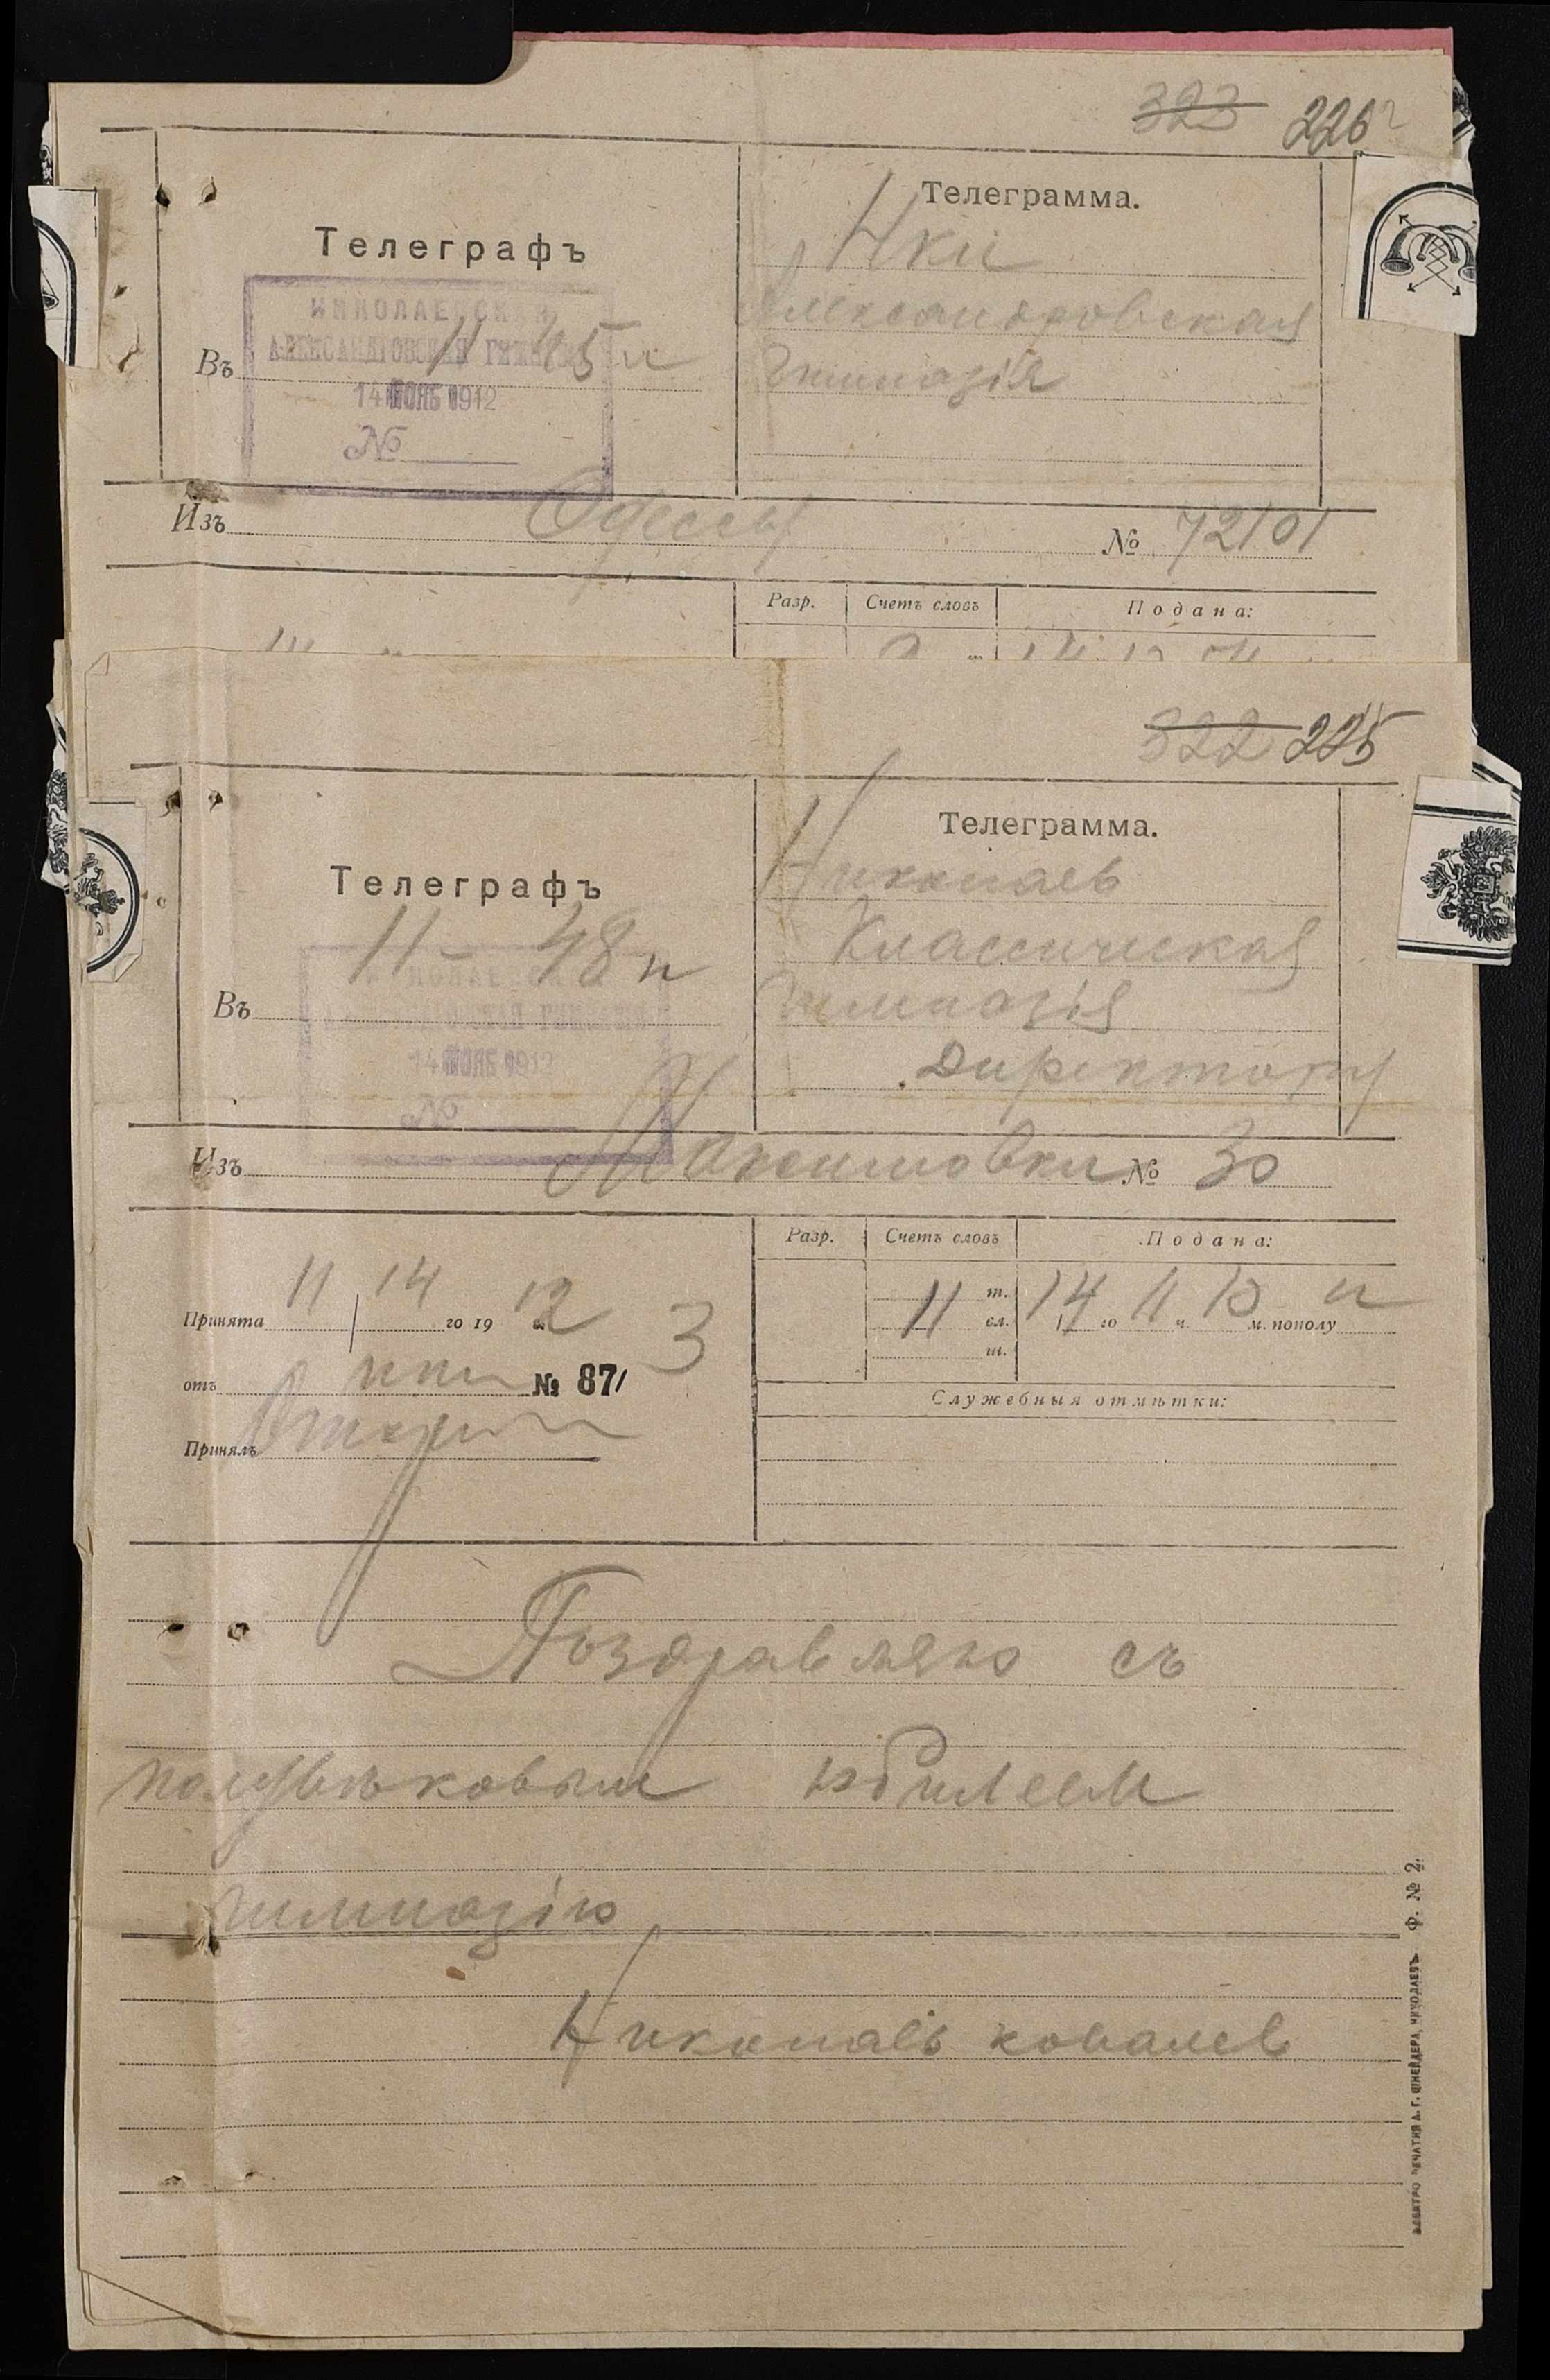 323 226
Телеграфъ
Телеграмма.
Нки
Александровская
Гимназія
НИКОЛАЕВСКАЯ
АЛЕКСАНДРОВСКАЯ ГИМНАЗІЯ
Въ 11 45 п
14 1912
№
Изъ Одессы № 72101
Разр. Счетъ словъ Подана:
322 225
Телеграфъ
Телеграмма.
Николаев
Классическая
Гимназія
Директору
11 48 п
Въ
14 1912
№
Изъ Максимовки № 30
Разр. Счетъ словъ Подана:
Принята 11 14 го 19 12 3
11 т. сл. ш. 14 го 11 ч. 10 м. пополу п
отъ нки № 87/
Служебныя отмѣтки:
Принялъ
Поздравляю съ
полувѣковым юбилеем
гимназію
Николаев ковалев
ЭЛЕКТРО ПЕЧАТНЯ А. Г. ШНЕЙДЕРА, НИКОЛАЕВЪ Ф. № 2.